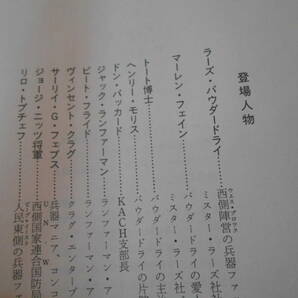 登場人物
ラーズ・パウダードライ……西側陣営の兵器ファ
ウエス・ブロック
マーレン・フェイン……ミスター・ラーズ社
トート博士……パウダードライの主
ヘンリー・モリス……パウダードライの片
ドン・パッカード……KACH支部長
ジャック・ランファーマン……ランファーマン・ア
ピート・フライド……ランファーマン・ア
ヴィンセント・クラグ……クラグ・エンタープ
サーリイ・G・フェブス……兵器マニア、コンコ
ジョージ・ニッツ将軍……西側国家連合国防局
UNW
リロ・トプチェフ……人民東側の兵器ファ
ミスター・ラーズ社
パウダードライの愛